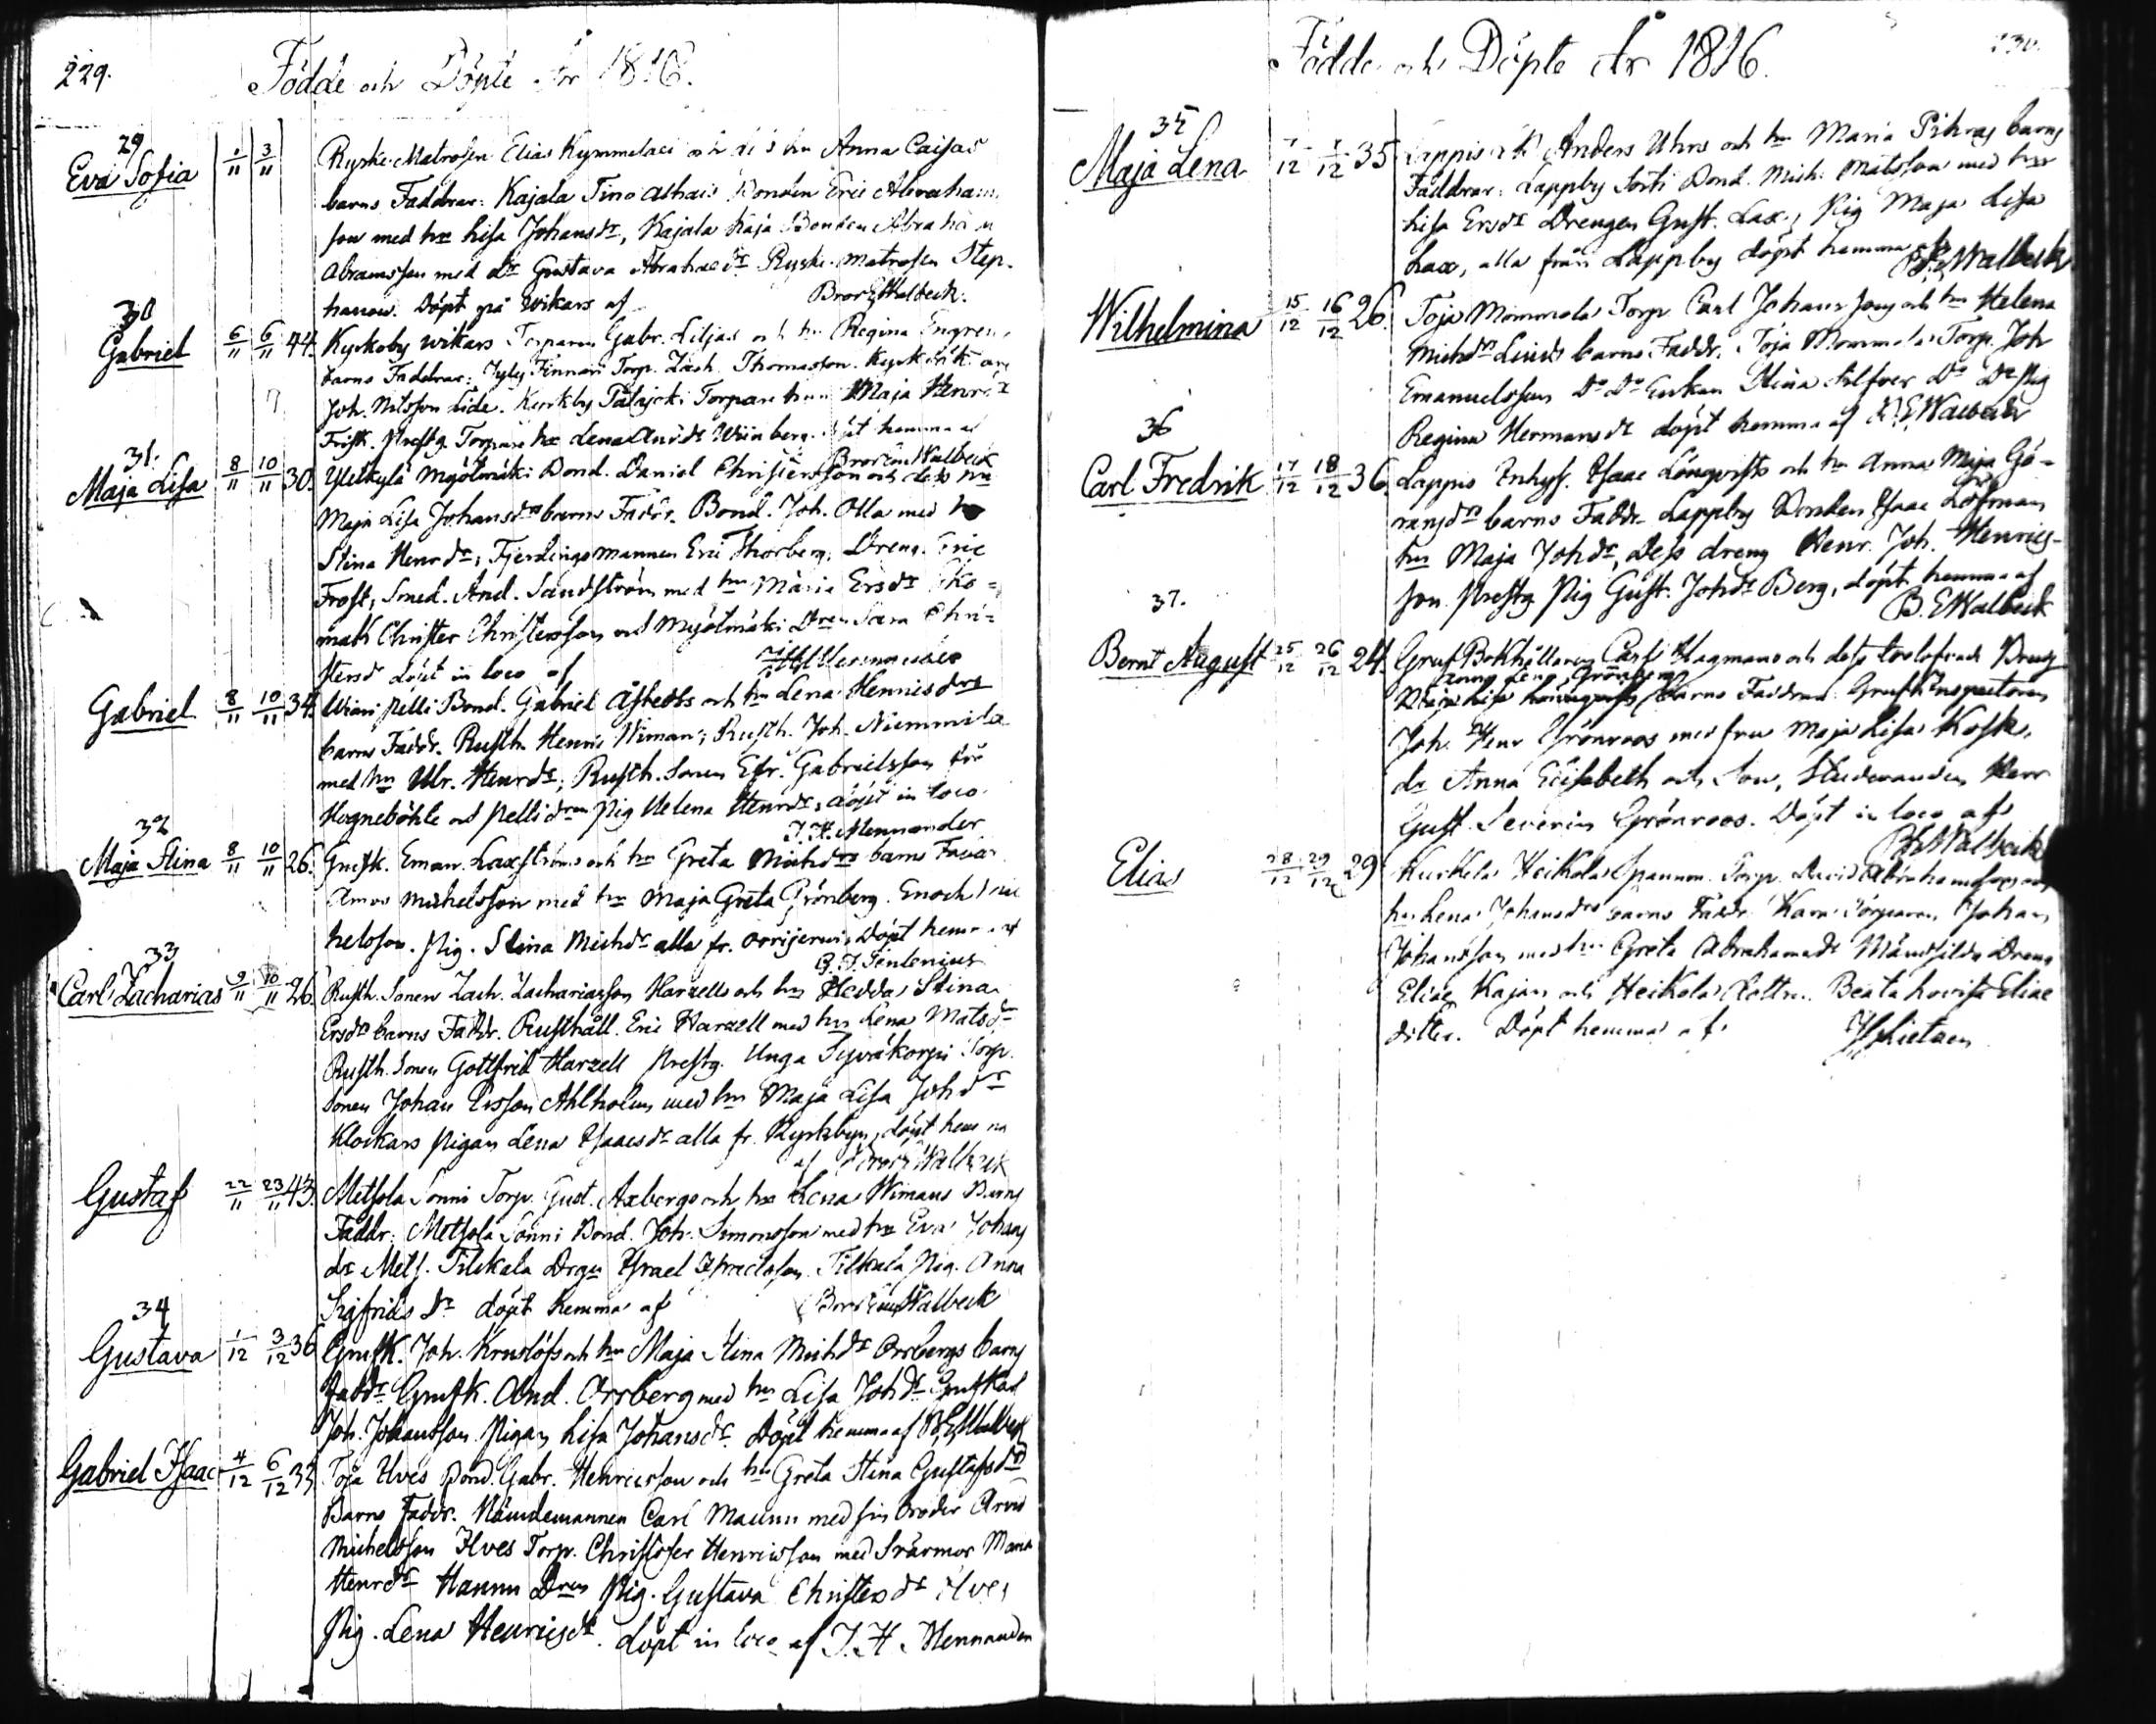 229.
Födde och Döpte År 1816.
29
Eva Sofia 1/11 3/11 Ryske Matrosen Elias Kymmelaei och hu Anna Caisas
barns Faddrar: Kajala Tino Bonden Eric Abraham
son med hu Lisa Johansdr, Kajala Kaja Bonden Abraham
Abramsson med dr Gustava Abrahasdr Ryske matrosen Step-
hanow. Döpt på Wikars af Bror E Walbeck.
30
Gabriel 6/11 6/11 44. Kyrkoby wikars Torparen Gabr. Liljas och hu Regina Engren
barns Faddrar: Finnari Torp. Zach. Thomasson.
Joh. Nilsson Lide. Kyrkby Torpare hu Maja Henrdr
Frisk. Prestg. Torpare hu Lena Wiinberg. döpt hemma af
Bror Em Walbeck
31.
Maja Lisa 8/11 10/11 30. Ylikylä Myölmäki Bond. Daniel Christersson och dess hu
Maja Lisa Johansdrs barns Faddr. Bond. Joh. Olla med hu
Stina Henrdr, Fjerdingsmannen Eric Thorberg, Dreng. Eric
Frost, Smed. And. Sandström med hu Maria Ersdr Sko=
mak Christer Christersson och Myölmäki Dren Sara Chri=
stersd döpt in loco af J H Mennander
Gabriel 8/11 10/11 34. Wiari Pelli Bond. Gabriel Åstedts och hu Lena Henricsdrs
barns Faddr. Rusth. Henric Wiman; Rusth. Joh. Niemmila
med hu Ulr. Henrdr; Rusth. Sonen Efr. Gabrielsson frå
Hogneböhle och Pelli dren Pig Helena Henrdr, döpt in loco.
J. H. Mennander
32
Maja Stina 8/11 10/11 26. Grufk. Eman. Laxströms och hu Greta Michdrs barns Faddr
Amos Michelsson med hu Maja Greta Grönberg. Enoch Mic
helsson. Pig. Stina Michdr alla fr. Orrijerwi, Döpt hemma af
G. J. Sentenius
33
Carl Zacharias 9/11 10/11 26. Rusth. Sonen Zach. Zachariasson Harzells och hu Hedda Stina
Ersdrs barns Faddr. Rusthåll. Eric Harzell med hu Lena Matsdr
Rusth. Sonen Gottfrid Harzell Prestg. Unga Syväkorpi Torp.
Sonen Johan Ersson Ahlholm med hu Maja Lisa Johdr
Klockars Pigan Lena Isaacsdr alla fr. Kyrkbyn, döpt hemma
af Bror E Walbeck
Gustaf 22/11 23/11 43. Metsola Sonni Torp. Gust. Axbergs och hu Lena Wimans Barns
Faddr: Metsola Sonni Bond. Joh. Simonsson med hu Eva Johans
dr Mets. Tilkala Drgn Israel Israelsson. Tilkala Pig. Anna
Sigfrids dr döpt hemma af Bror Em Walbeck
34
Gustava 1/12 3/12 36 Grufk. Joh. Kruslöfs och hu Maja Stina Michdr Orrbergs barns
Faddr Grufk. And. Orrberg med hu Lisa Johdr Grufkarl
Joh. Johansson Pigan Lisa Johansdr. Döpt hemma af B. E. Walbeck
Gabriel Isaac 4/12 6/12 33 Toja Ilves Bond. Gabr. Henricsson och hu Greta Stina Gustafsdrs
Barns Faddr. Nämdemannen Carl Maunu med sin Broder Arvid
Michelsson Ilves Torp. Christofer Henricsson med Svärmor Maria
Henrdr Hannu Dren Pig. Gustava Christersdr Ilves
Pig. Lena Henricsdr. döpt in loco af J. H. Mennander
230.
Födde och Döpte År 1816.
35
Maja Lena 7/12 /12 35 Lappis Anders Uhrs och hu Maria Pihras barns
Faddrar: Lappby Sorti Bond. Mich. Matsson med hu
Lisa Ersdr Drengen Gust. Lax, Pig Maja Lisa
Lax, alla från Lappby döpt hemma af B. E. Walbeck
Wilhelmina 15/12 16/12 26. Toja Mommola Torp. Carl Johans Jong och hu Helena
Michdrs Linds barns Faddr. Toja Mommola Torp. Joh
Emanuelsson Do Do Enkan Stina Silfver Do Do Pig
Regina Hermansdr döpt hemma af B. E. Walbeck
36
Carl Fredrik 17/12 18/12 36. Lappis Inhys. Isaac Lönqvists och hu Anna Maja Gö-
ransdrs barns Faddr. Lappby Bonden Isaac Löfman
hu Maja Johdr, Dess dreng Henr. Joh. Henrics-
son Prestg. Pig Gust. Johdr Berg, döpt hemma af
B. E Walbeck
37.
Bernt August 25/12 26/12 24. Gruf Bokhållaren Carl Hagmans och dess trolofvade
Anna Lena Grönberg
Maja Lisa barns Faddrar. Gruf Inspectoren
Joh. Henr Grönroos med fru Maja Lisa Kosk,
dr Anna Elisabeth och Son, Studeranden Herr
Gust. Severin Grönroos. Döpt in loco af
B E Walbeck
Elias 28/12 29/12 29 Kurkela Heikola Spannm. Torp. David Abrahamssons och
hu Lena Johansdrs barns Faddr. Torparen Johan
Johansson med hu Greta Abrahamsdr Dreng
Elias Kajan och Heikola Beata Lovisa Eliae
dotter. Döpt hemma af